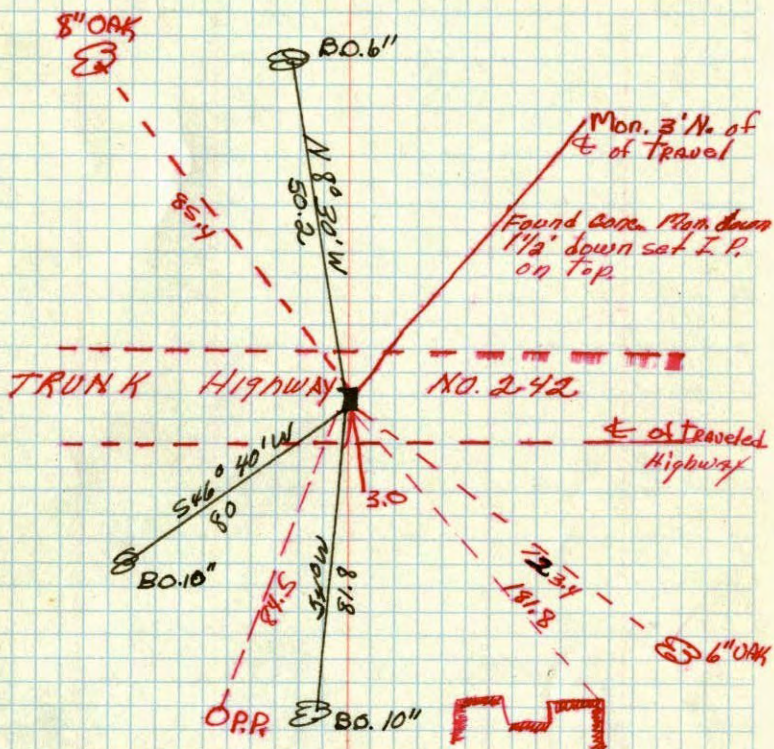 8" OAK
B.O. 6"
N 8° 30' W
50.2
85.4
Mon. 3' N. of
℄ of TRAVEL
Found conc. Mon. down
1 1/2' down set I.P.
on Top.
TRUNK HighwAY NO. 242
℄ of TRAVELED
Highway
S46° 40' W
80
3.0
B.O. 10"
84.5
81.8
123.4
181.8
6" OAK
P.P.
B.O. 10"